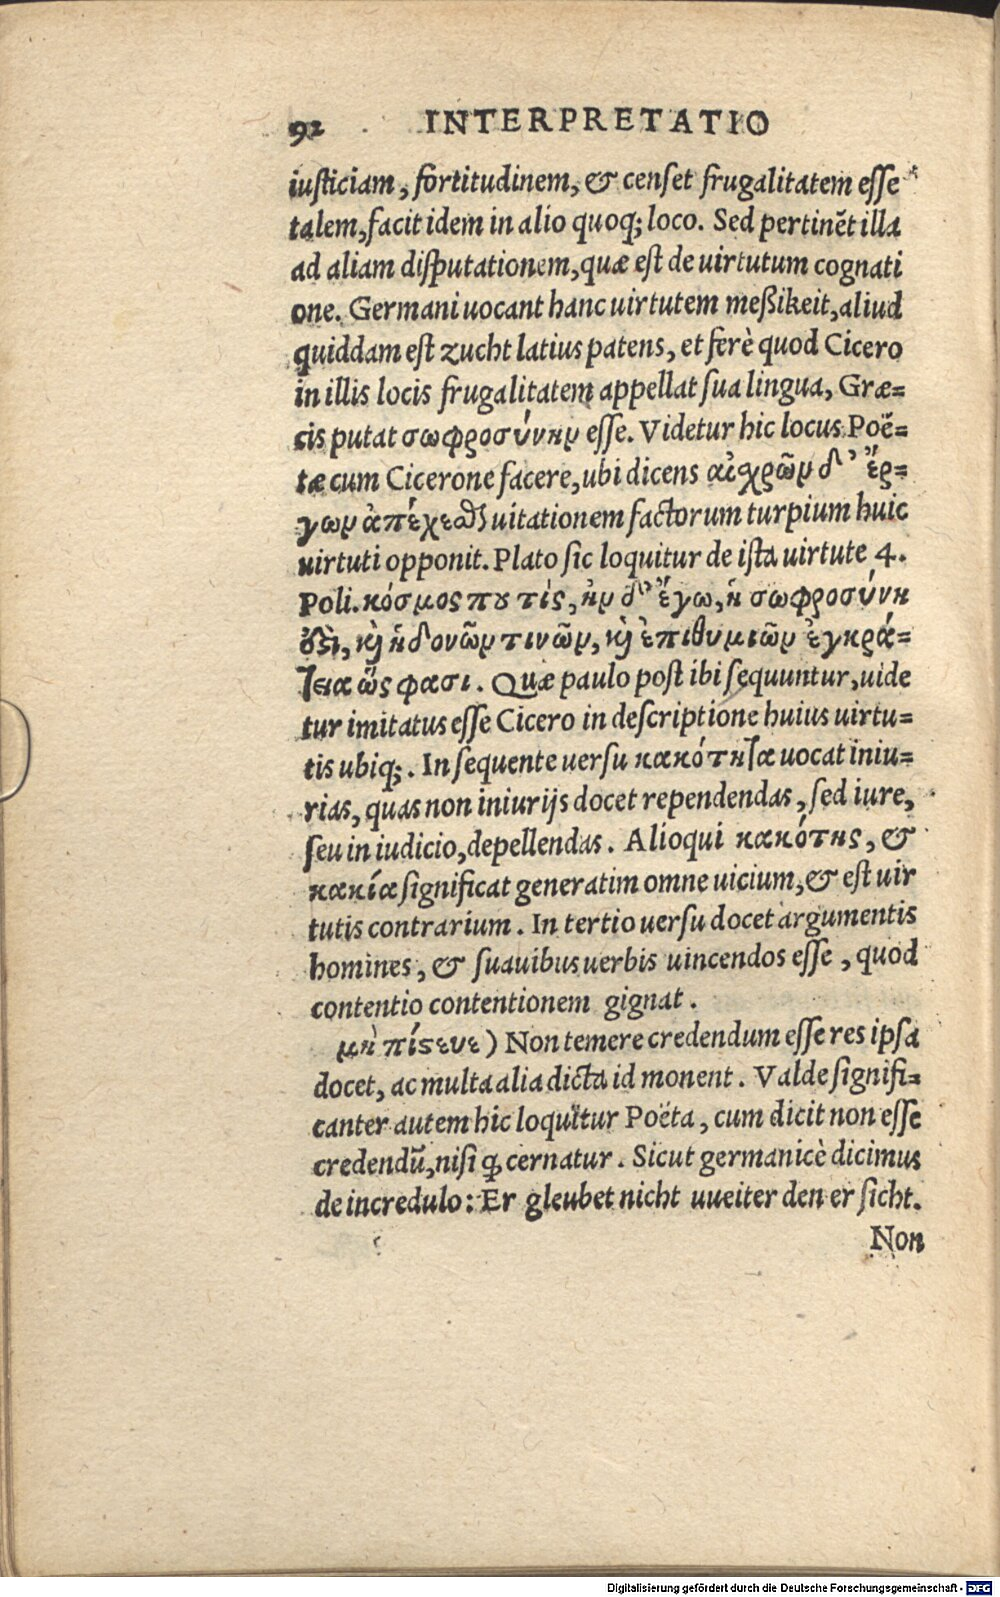 92 INTERPRETATIO
iusticiam, fortitudinem, & censet frugalitatem esse
talem, facit idem in alio quoq; loco. Sed pertinẽt illa
ad aliam disputationem, quæ est de uirtutum cognati
one. Germani uocant hanc uirtutem meßikeit, aliud
quiddam est zucht latius patens, et ferè quod Cicero
in illis locis frugalitatem appellat sua lingua, Græ=
cis putat σωφροσύνην esse. Videtur hic locus Poë=
tæ cum Cicerone facere, ubi dicens αἰσχρῶν δ' ἔρ=
γων ἀπέχεσθαι uitationem factorum turpium huic
uirtuti opponit. Plato sic loquitur de ista uirtute 4.
Poli. κόσμος που τίς, ἠν δ' ἔγω, ἡ σωφροσύνη
ὅξὶ, καὶ ἡδονῶν τινῶν, καὶ ἐπιθυμιῶν ἐγκρά=
τεια ὥς φασι. Quæ paulo post ibi sequuntur, uide
tur imitatus esse Cicero in descriptione huius uirtu=
tis ubiq;. In sequente uersu κακότητα uocat iniu=
rias, quas non iniurijs docet rependendas, sed iure,
seu in iudicio, depellendas. Alioqui κακότης, &
κακία significat generatim omne uicium, & est uir
tutis contrarium. In tertio uersu docet argumentis
homines, & suauibus uerbis uincendos esse, quod
contentio contentionem gignat.
μὴ πίστευε) Non temere credendum esse res ipsa
docet, ac multa alia dicta id monent. Valde signifi=
canter autem hic loquitur Poëta, cum dicit non esse
credendũ, nisi ꝙ cernatur. Sicut germanicè dicimus
de incredulo: Er gleubet nicht uueiter den er sicht.
Non
Digitalisierung gefördert durch die Deutsche Forschungsgemeinschaft - DFG